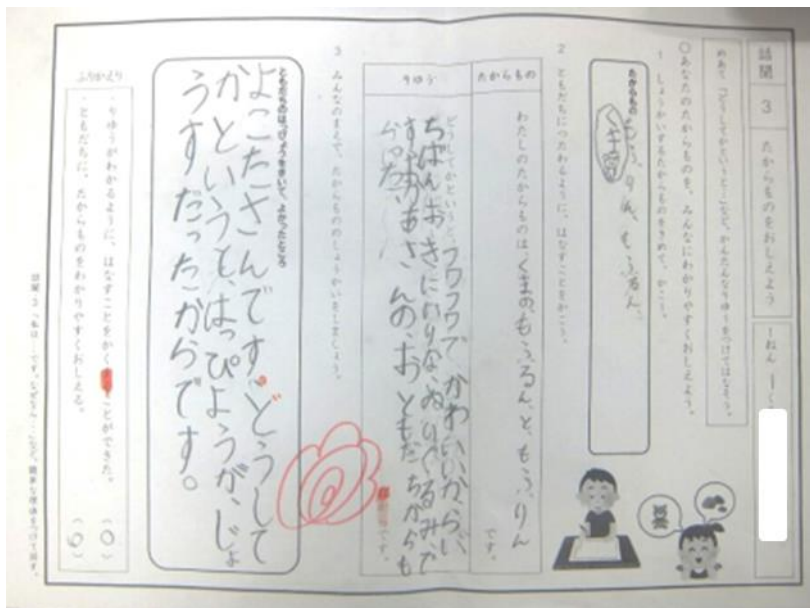 話聞 3 たからものをおしえよう 一ねん
めあて「どうしてかというと…」など、かんたんなりゆうをつけてはなそう。
○あなたのたからものを、みんなにわかりやすくおしえよう。
1 しょうかいするたからものをきめて、かこう。
たからもの もふりん、もふるん、
くま
2 ともだちにつたわるように、はなすことをかこう。
たからもの
わたしのたからものは、くまの、もふるん、と、もふりん
です。
りゆう
どうしてかというと、フワフワで かわいいからい
ちばんおきにいりな、ぬいぐるみで
さんの、おともだちからも
らった
です。
3 みんなのまえで、たからもののしょうかいをしましょう。
ともだちのはっぴょうをきいて、よかったところ
よこたさんです。どうして
かというと、はっぴょうが、じょ
うずだったからです。
ふりかえり
・りゆうがわかるように、はなすことをかくことができた。 (○)
・ともだちに、たからものをわかりやすくおしえる。 (○)
話聞 3 「私は…です。なぜなら…」など、簡単な理由をつけて話す。